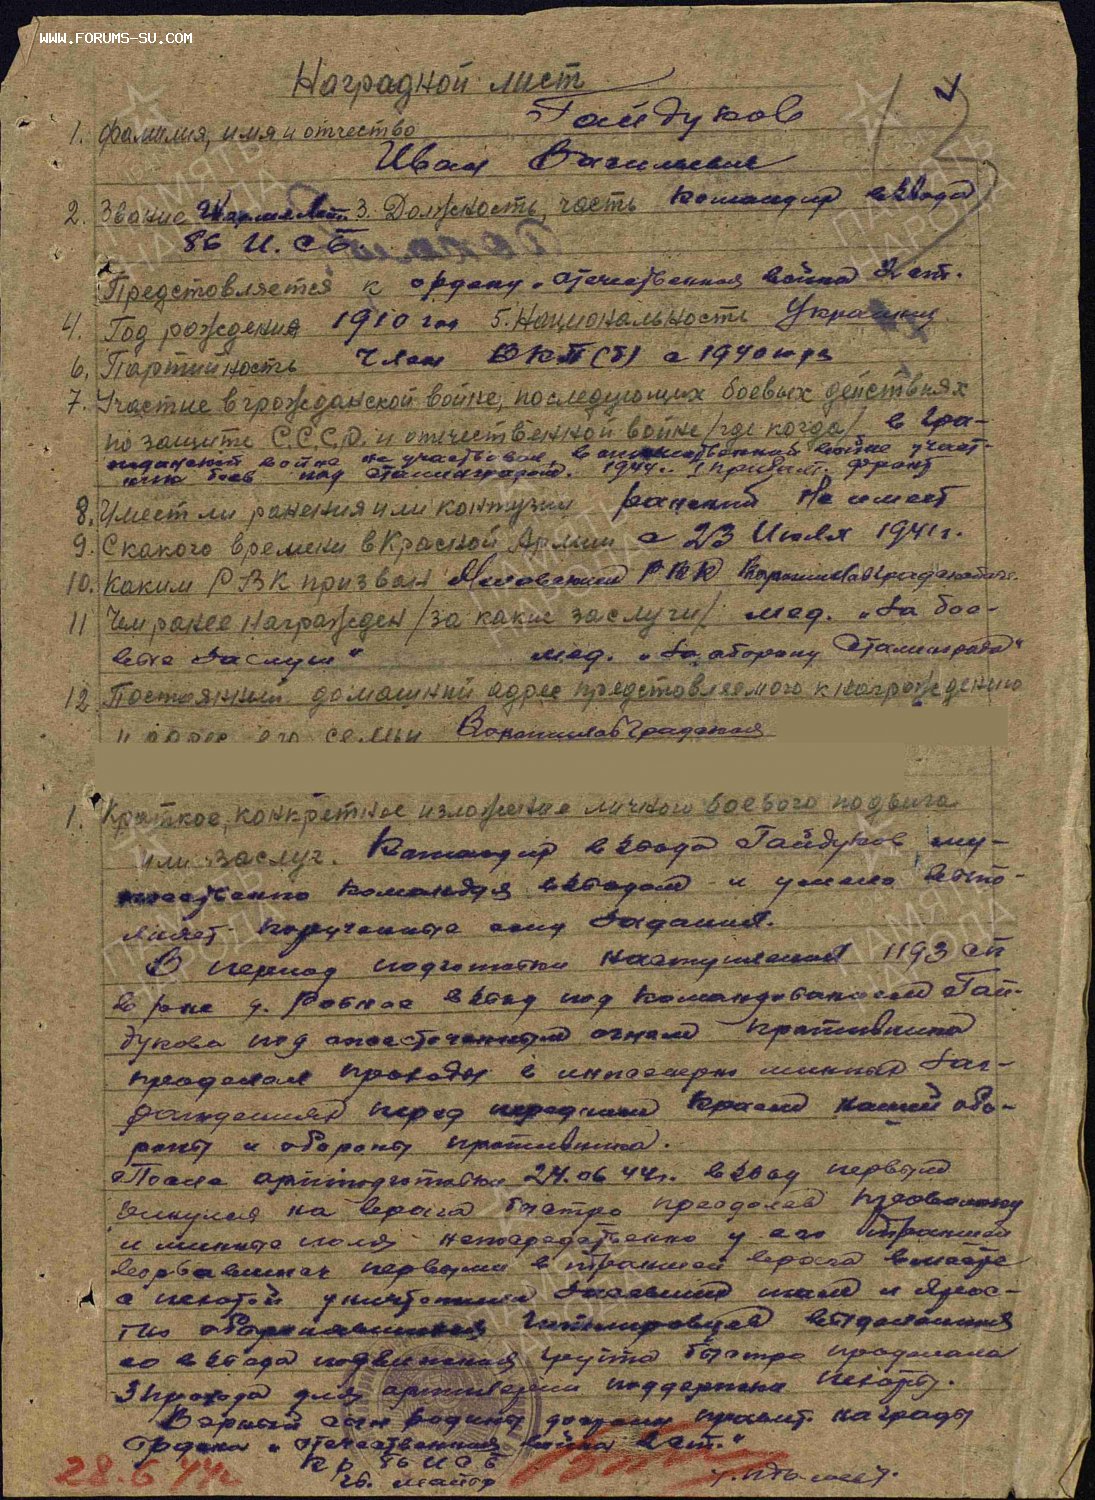 WWW.FORUMS-SU.COM
Наградной лист
1. Фамилия, имя и отчество Гайдуков
Иван Васильевич
2. Звание 3. Должность, часть командир взвода
86 И.С.Б.
Представляется к ордену "Отечественная война 2 ст.
4. Год рождения 1910 год 5. Национальность Украинец
6. Партийность Член ВКП(б) с 1940 года
7. Участие в гражданской войне, последующих боевых действиях
по защите С.С.С.Р. и отечественной войне /где когда/ в гра-
жданской войне не участвовал, в отечественной войне участ-
ник боев под Сталинградом. 1944г. 1 Прибалт. фронт
8. Имеет ли ранения или контузии ранений не имеет
9. С какого времени в Красной Армии с 23 Июля 1941г.
10. Каким РВК призван Меловским РВК
11 Чем ранее награжден /за какие заслуги/ мед. "За бое-
вые заслуги" мед. "За оборону Сталинграда"
12 Постоянный домашний адрес представляемого к награждению
и адрес его семьи Ворошиловградская
1. Краткое, конкретное изложение личного боевого подвига
или заслуг. Командир взвода Гайдуков му-
жественно командуя взводом и умело выпо-
лняет порученные ему задания.
В период подготовки наступления 1193 сп
в р-не д. Ровное взвод под командованием Гай-
дукова под ожесточенным огнем противника
проделал проходы в инженерно минных заг-
раждениях перед передним краем нашей обо-
роны и обороны противника.
После артподготовки 24.06.44г. взвод первым
кинулся на врага быстро преодолев проволоку
и минные поля непосредственно у его траншей
ворвавшись первыми в траншеи врага вместе
с пехотой уничтожила засевших там и ярос-
тно оборонявшихся гитлеровцев выделенная
со взвода подвижная группа быстро проделала
3 прохода для артиллерии поддержки пехоты.
Верный сын Родины достоин правит. награды
Ордена "Отечественная война 2 ст."
К-р 86 ИСБ
гв. майор
28.6.44г.